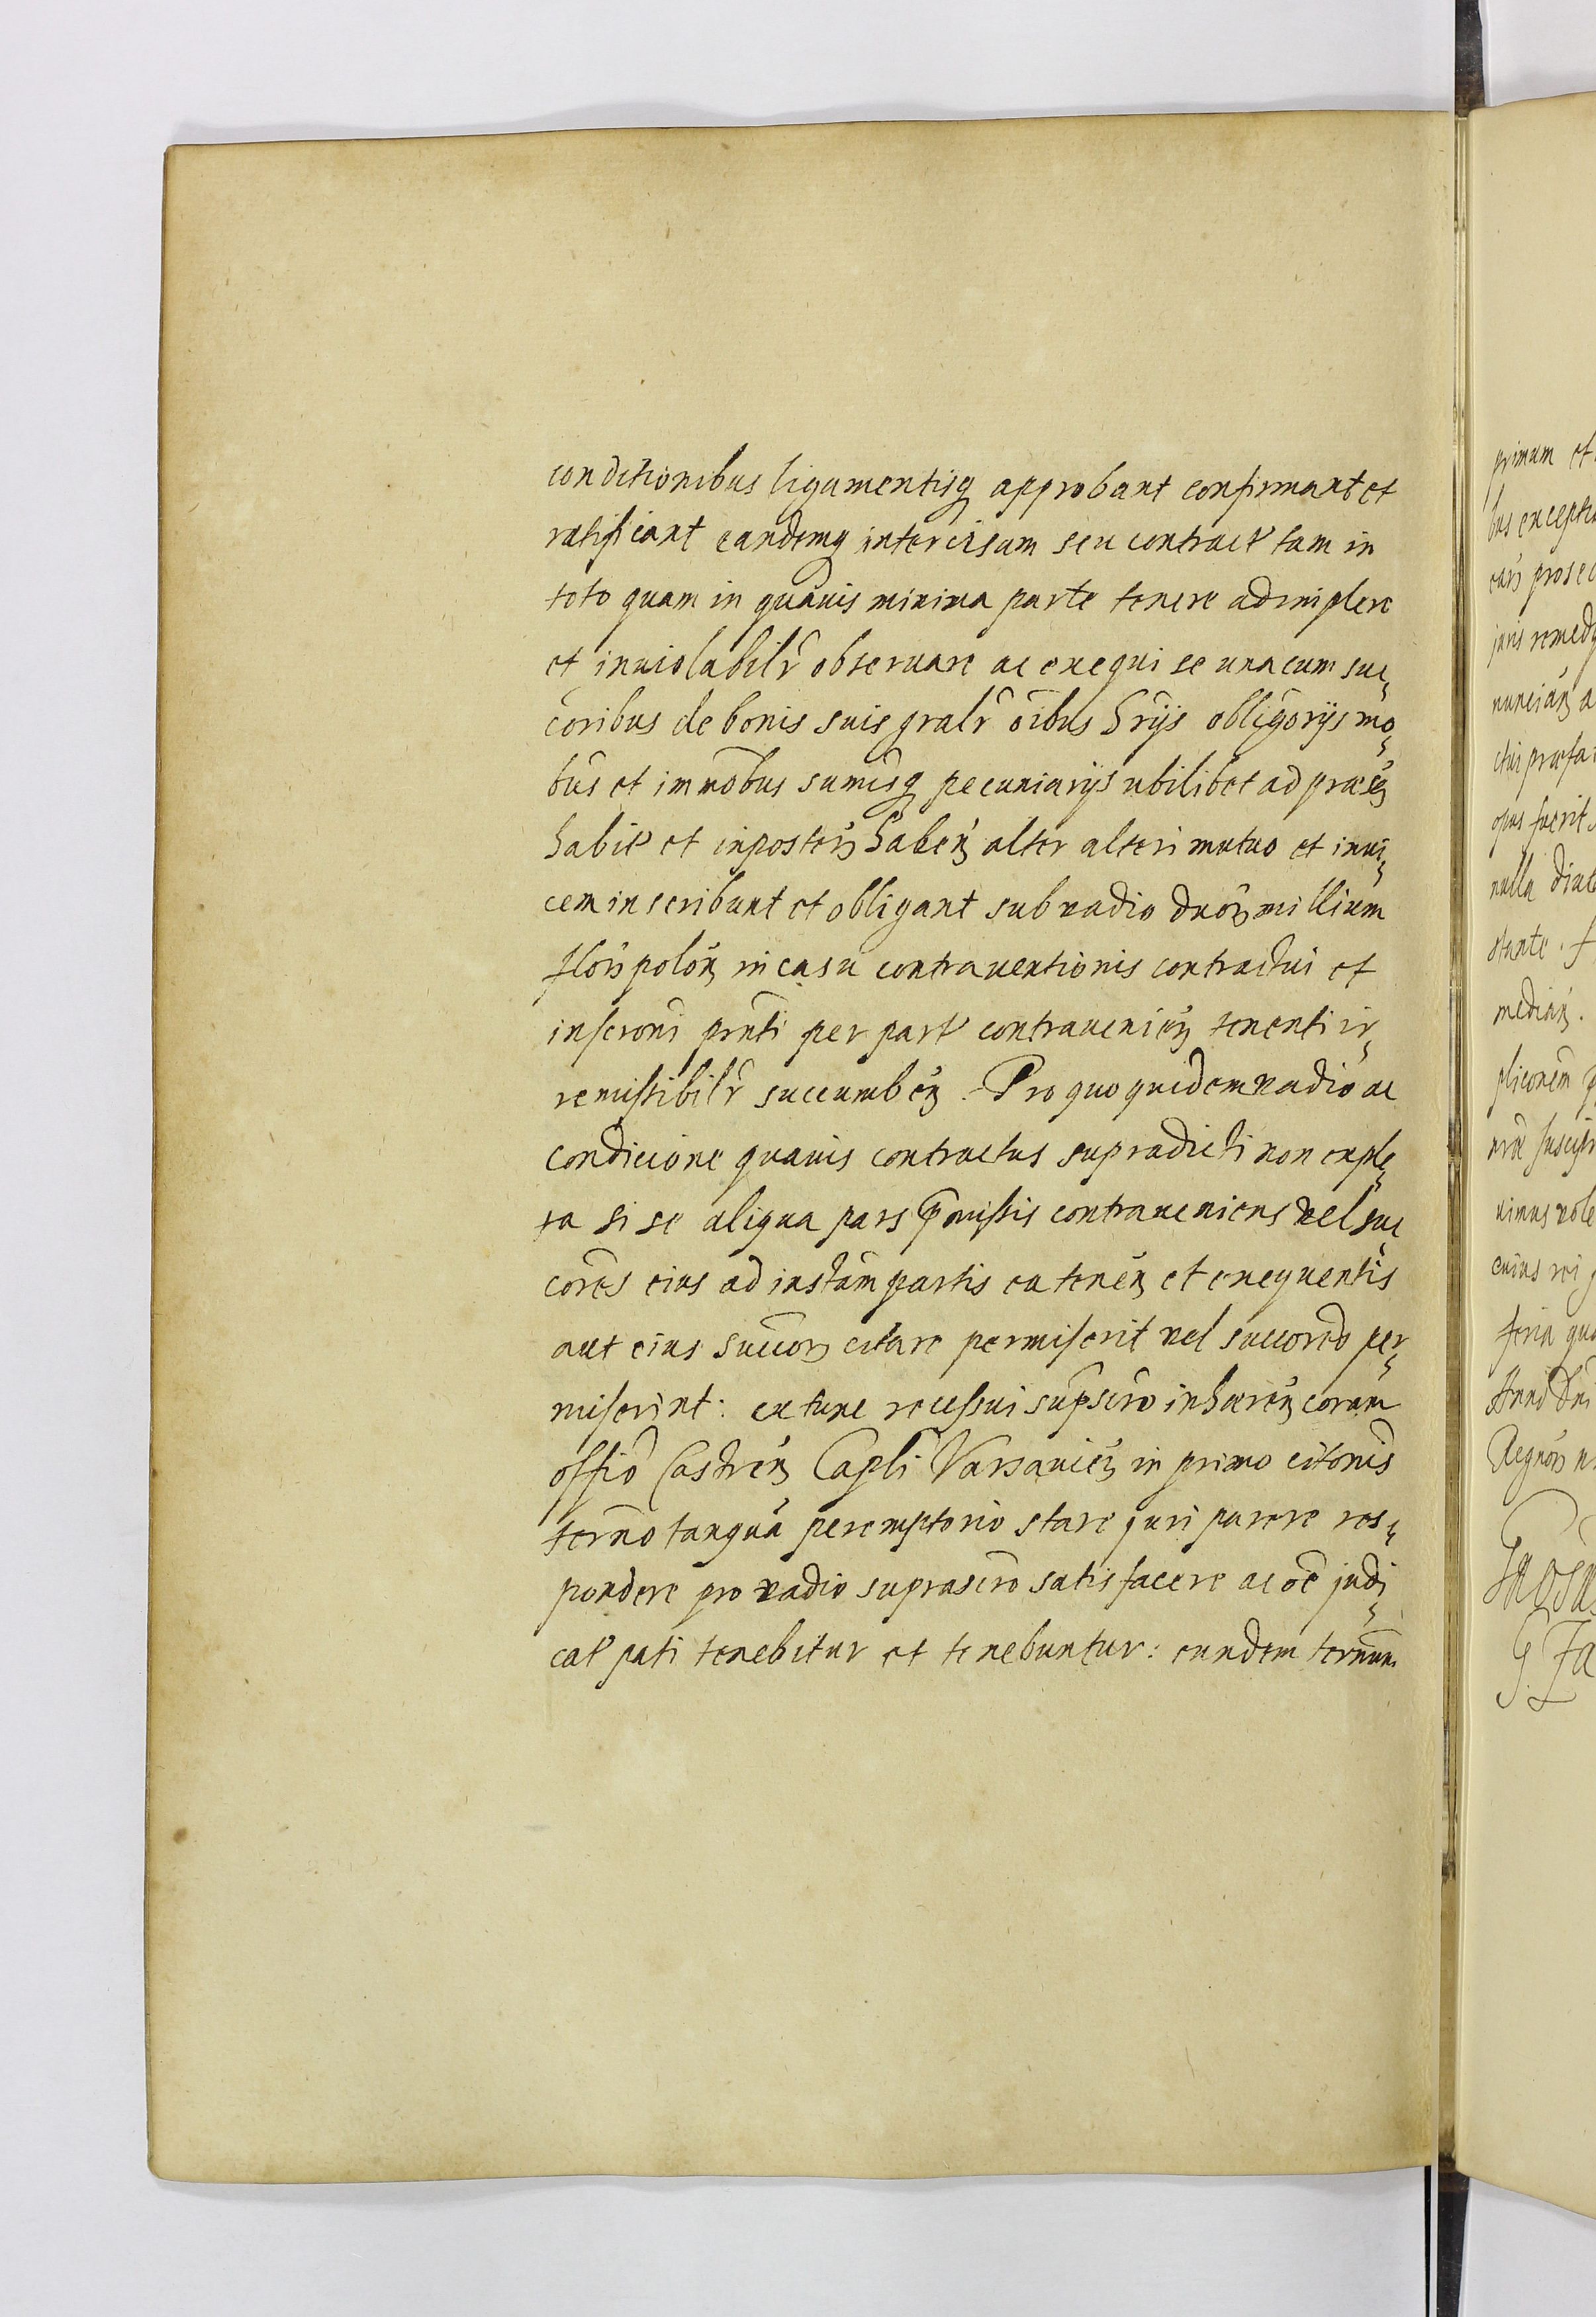 conditionibus ligamentisq approbant confirmant et
ratificant eandemq intercisam seu contract tam in
toto quam in quauis minima parte tenere adimplere
et inuiolabilr obseruare ac exequi se unacum suc
coribus de bonis suis gralr oibus hrijs obligorijs mo
bus et immobus sumisq pecuniarijs ubilibet ad praes
habit et inposter haben alter alteri mutuo et inui
cem inscribunt et obligant sub vadio duor millium
flor polon in casu contrauentionis contractui et
inscroni pnti per part contrauenien tenenti ir
remissibilr succumben. Pro quo quidem vadio ac
condicione quauis contractus supradicti non exple
ta si se aliqua pars pmissis contraueniens vel suc
cores eius ad instam partis ea tenen et exequentis
aut eius succor citare permiserit vel succores per
miserint: extunc recessui supscro inhaeren coram
offio Castren Capli Varsauien in primo citonis
termo tanqua peremptorio stare juri parere res
pondere pro vadio suprascro satisfacere ac oe judi
cat pati tenebitur et tenebuntur: eundem termum
primum et
bus excepti
prosec
juris remedy
nuncian a
ctui praefa
opus fuerit
nulla
stante. f
median.
pliconem
uimus vole
cuius rei
feria qu
Anno Dni
Regnor n